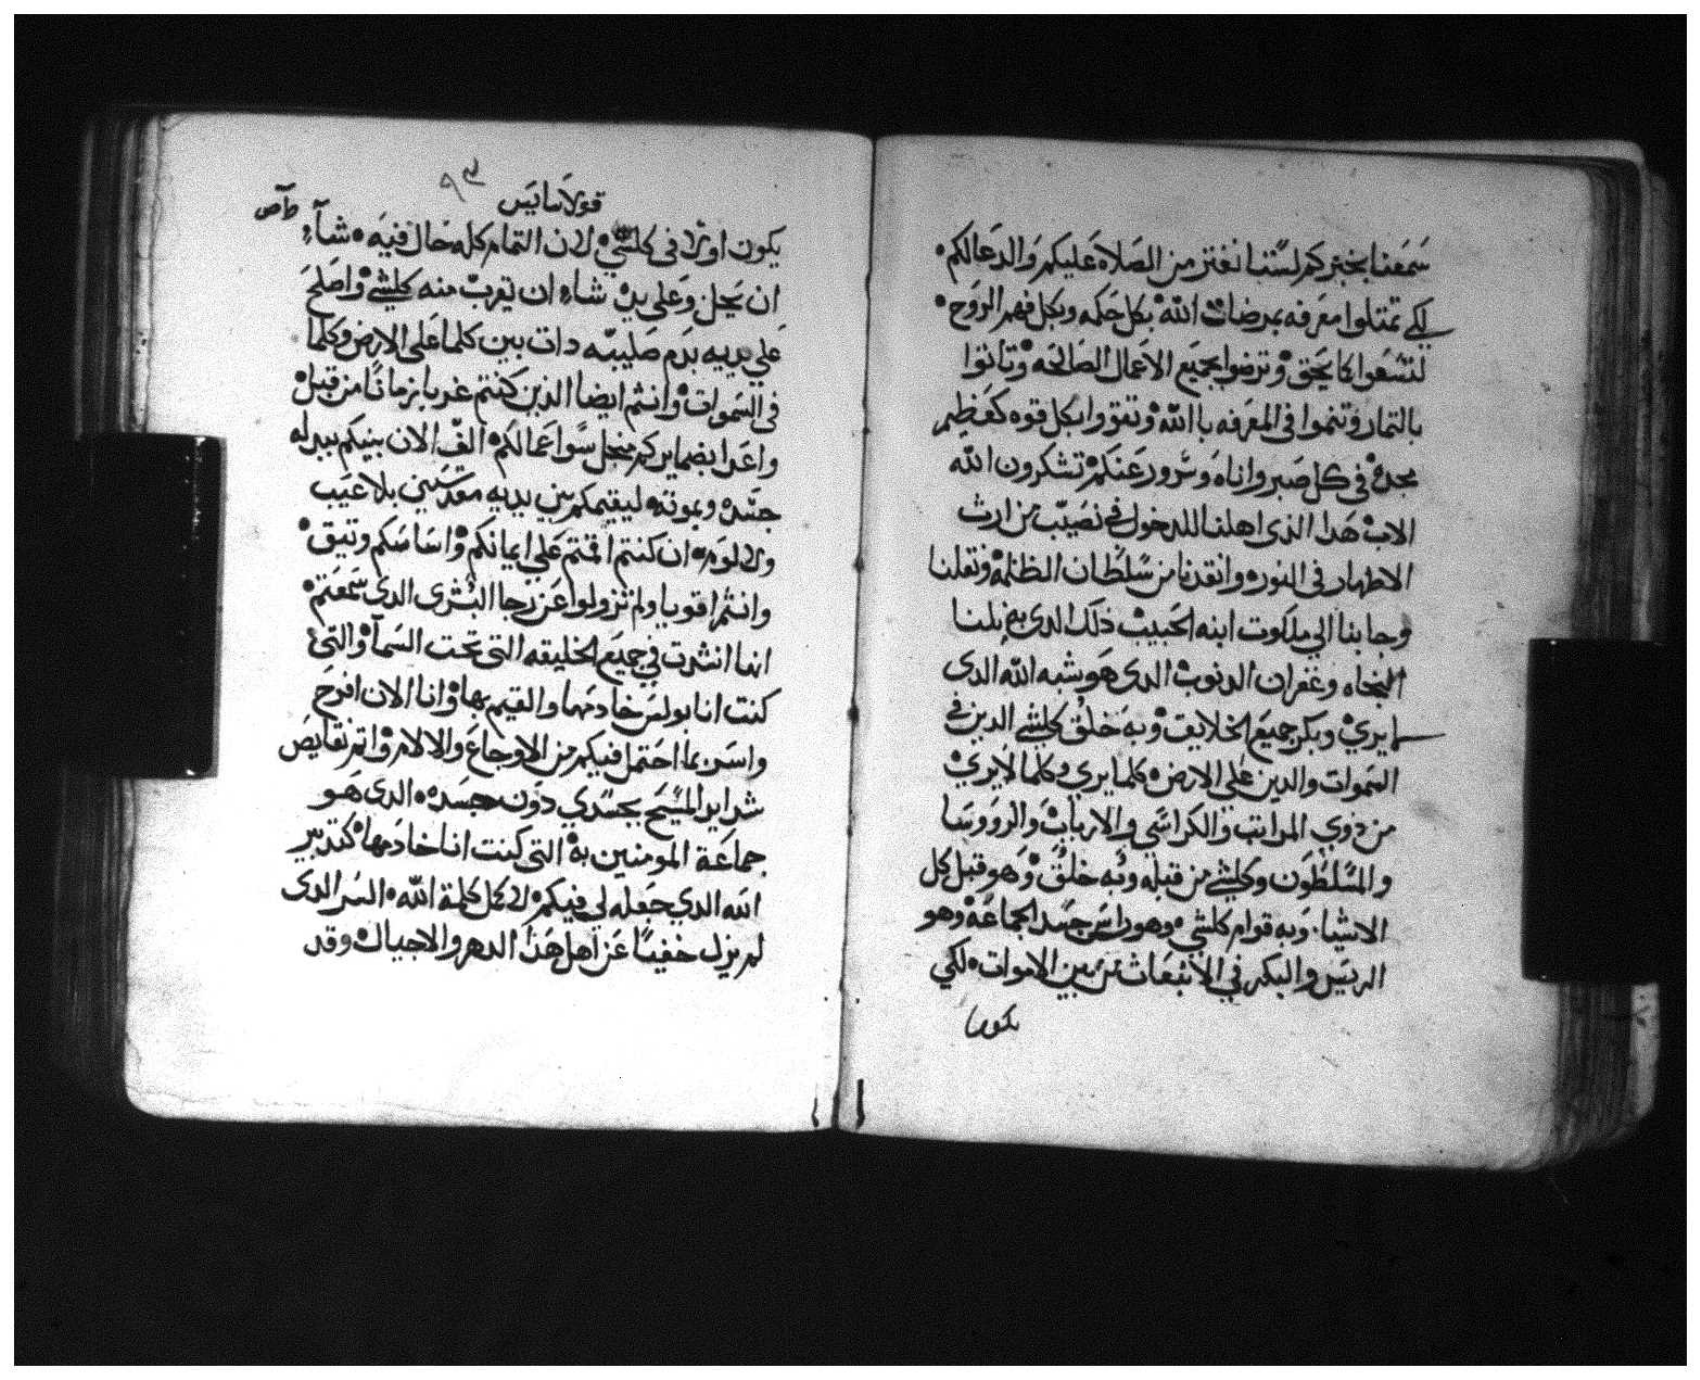 سمعنا بخبركم لسنا نفتر من الصلاه عليكم والدعا لكم
لكي تمتلوا معرفه بمرضات الله بكل حكمه وبكل فهم الروح
لتسعوا كما يحق وترضوا بجميع الاعمال الصالحه وتاتوا
بالتمار وتنموا في المعرفه بالله وتتقووا بكل قوه كعظيم
مجده في كل صبر واناه وسرور عنكم تشكرون الله
الاب هدا الذي اهلنا للدخول في نصيب من ارث
الاطهار في النور وانقدنا من سلطان الظلمه ونقلنا
وجا بنا الي ملكوت ابنه الحبيب ذلك الدي به نلنا
النجاه وغفران الدنوب الدي هو شبه الله الدي
لا يري وبكر جميع الخلايق وبه خلق كلشي الدين في
السموات والدين علي الارض كلما يري وكلما لا يري
من ذوي المراتب والكراسي والارباب والرووسا
والمسلطون وكلشي من قبله وبه خلق وهو قبل كل
الاشيا وبه قوام كلشي وهو راس جسد الجماعه وهو
الريس والبكر في الانبعاث من بين الاموات لكي
يكون
قولاسايس
٩٣
يكون اولا في كلشي لان التمام كله حال فيه شاء
ان يحل وعلي يديه شاء ان يقرب منه كلشي واصلح
علي يديه بدم صليبه دات بين كلما على الارض وكلما
في السموات وانتم ايضا الذين كنتم غربا زمانا من قبل
واعدا بضمايركم من اجل سوا عمالكم الف الان بينكم ببدله
جسده وبموته ليقيمكم بين يديه مقدسين بلا عيب
ولا لوم ان كنتم اقمتم علي ايمانكم واساسكم وتيق
وانتم اقويا ولم تزولوا عن رجا البشرى الدي سمعتم
انها اندرت في جميع الخليقه التي تحت السما والتي
كنت انا بولس خادمها والقيم بها وانا الان افرح
واسر بما احتمل فيكم من الاوجاع والالام واتم نقايص
شدايد المسيح بجسدي دون جسده الدي هو
جماعة المومنين به التي كنت انا خادمها كتدبير
الله الدي جعله لي فيكم لاكمل كلمة الله السر الدى
لم يزل خفيا عن اهل هذا الدهر والاجيال وقد